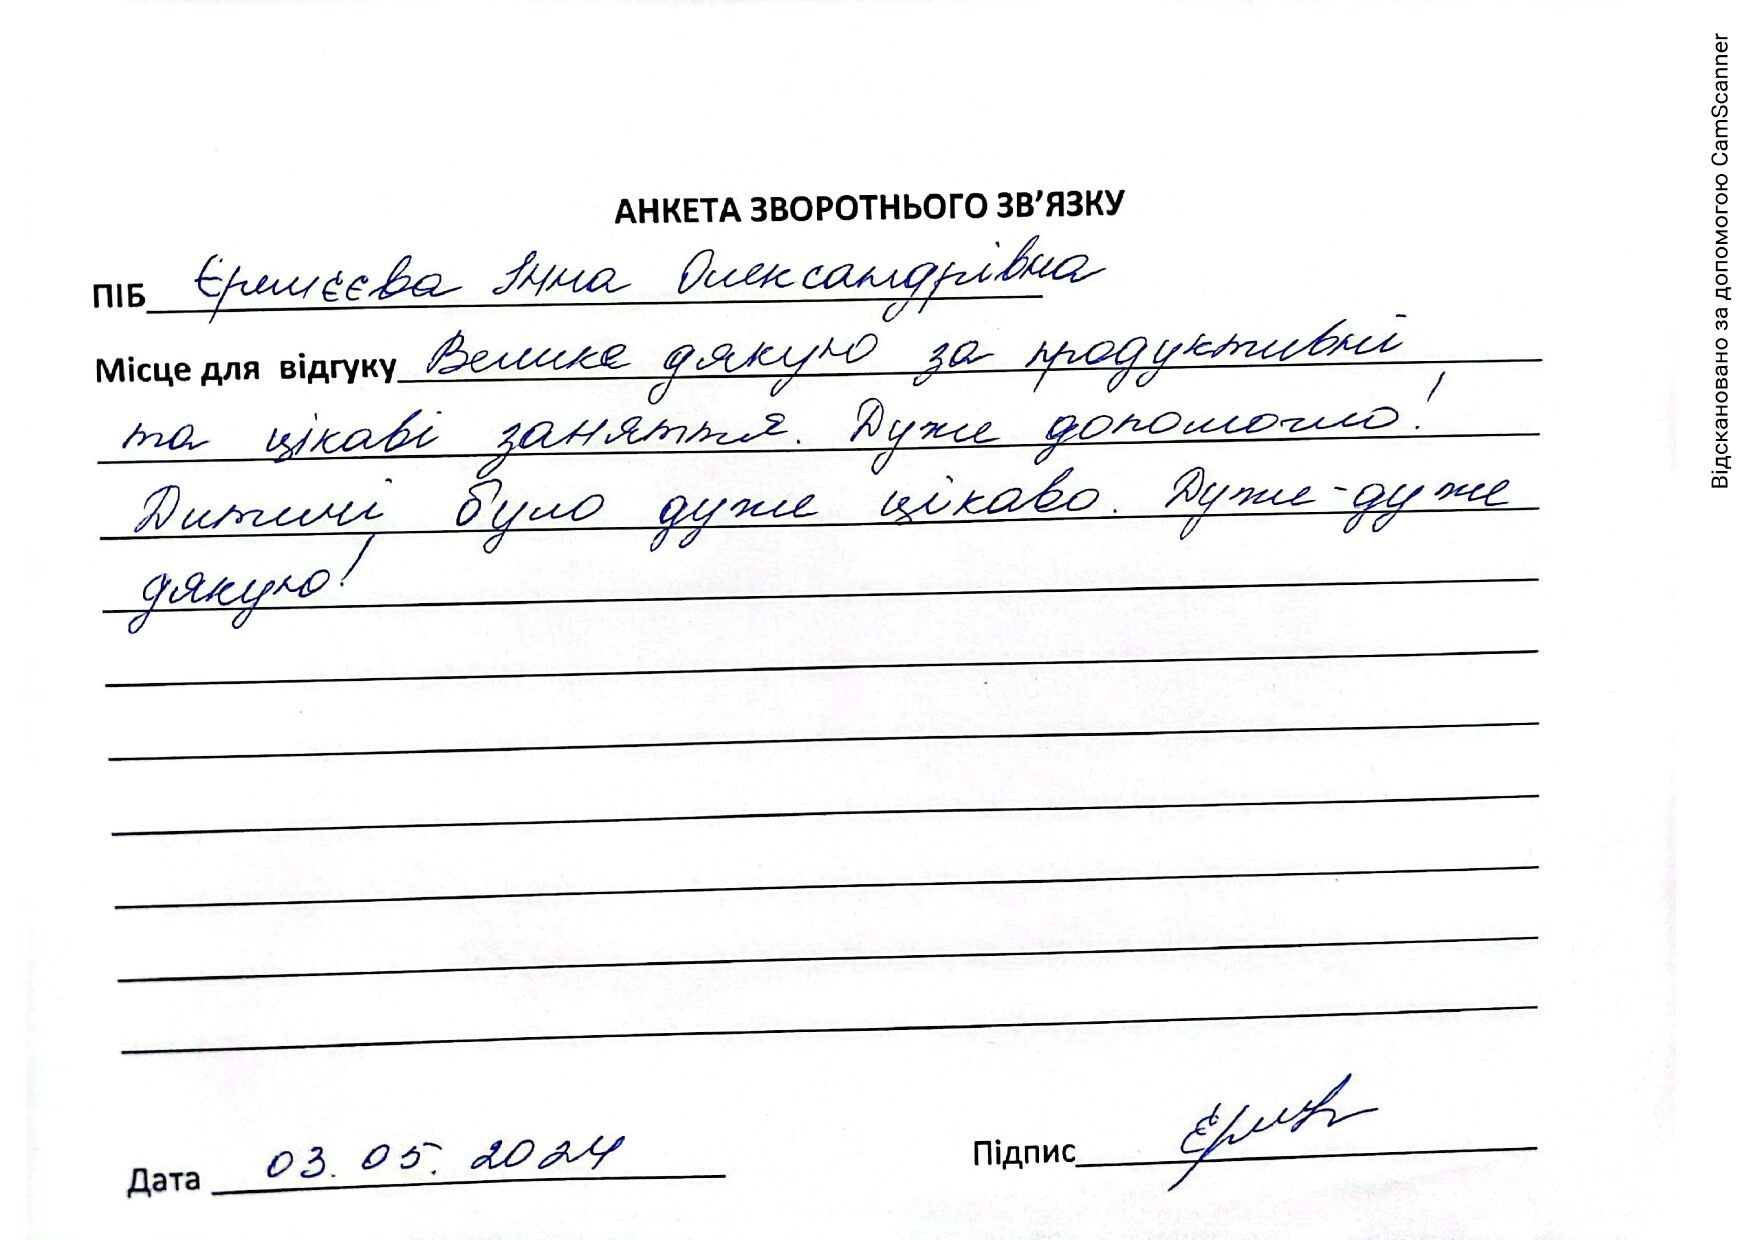 АНКЕТА ЗВОРОТНЬОГО ЗВ'ЯЗКУ
ПІБ Єрмєєва Інна Олександрівна
Місце для відгуку Велике дякую за продуктивні
та цікаві заняття. Дуже допомогло!
Дитині було дуже цікаво. Дуже-дуже
дякую!
Дата 03.05.2024
Підпис
Відскановано за допомогою CamScanner